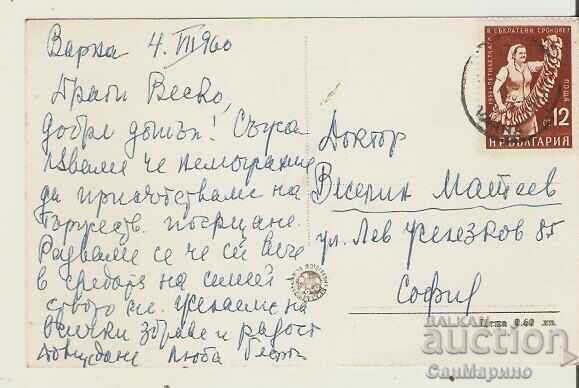 Варна 4.VIII 960
Драги Веско,
Добре дошъл! Съжа
ляваме че немогохме
да присътстваме на
тържеств. посрещане.
Радваме се че си вече
в средата на семей
ството си. Желаеме на
всички здраве и радост
Довиждане Люба Георги
Доктор
Веселин Матеев
ул. Лев Железков 85
София
Цена 0.60 лв.
В СЪКРАТЕНИ СРОКОВЕ!
ПЕТИЛЕТКАТА
12
НР БЪЛГАРИЯ
ПОЩА
БАЛКАН
auction
СанМарино